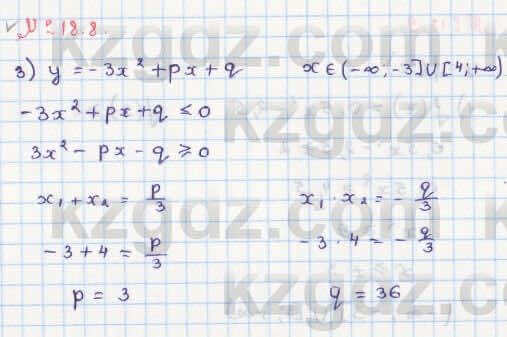 № 18.8.
3) y = -3x² + px + q x ∈ (-∞; -3] ∪ [4; +∞)
-3x² + px + q ≤ 0
3x² - px - q ≥ 0
x₁ + x₂ = p/3 x₁ · x₂ = - q/3
-3 + 4 = p/3 -3 · 4 = - q/3
p = 3 q = 36
kzgdz.com